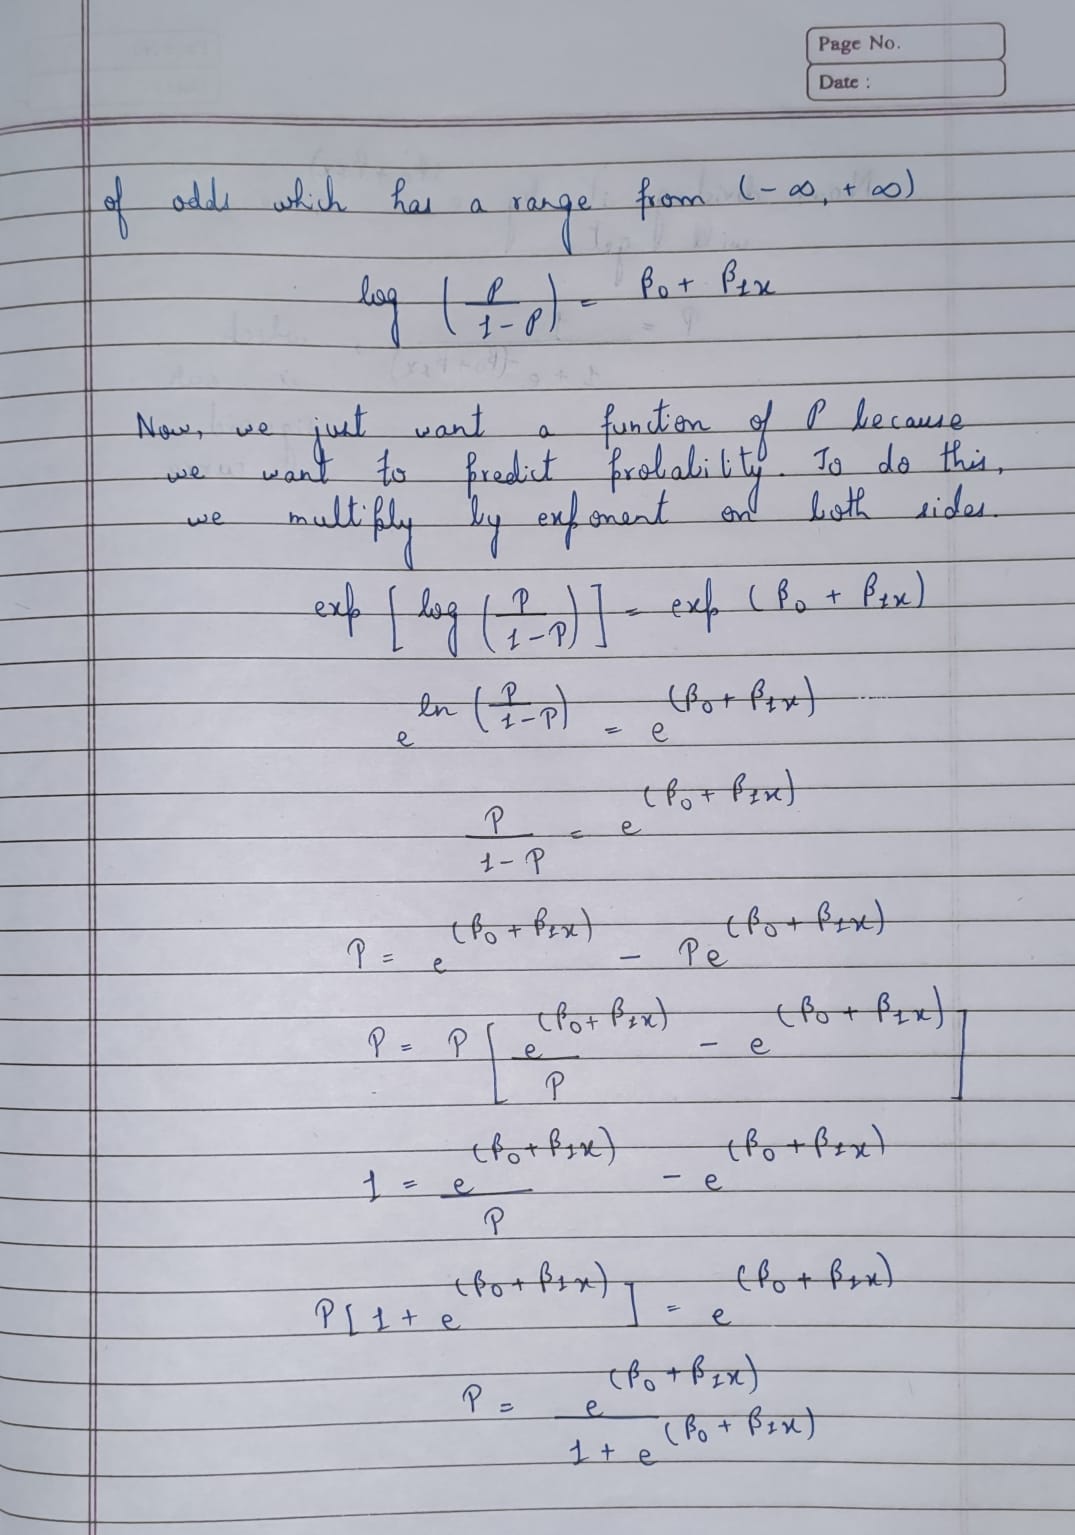 Page No.
Date :
of odds which has a range from (-∞, +∞)
log (P/1-P) = β0 + β1x
Now, we just want a function of P because
we want to predict probability. To do this,
we multiply by exponent on both sides.
exp [log (P/1-P)] = exp (β0 + β1x)
e^ln (P/1-P) = e^(β0 + β1x)
P/1-P = e^(β0 + β1x)
P = e^(β0 + β1x) - Pe^(β0 + β1x)
P = P [e^(β0 + β1x)/P - e^(β0 + β1x)]
1 = e^(β0 + β1x)/P - e^(β0 + β1x)
P[1 + e^(β0 + β1x)] = e^(β0 + β1x)
P = e^(β0 + β1x)/1 + e^(β0 + β1x)